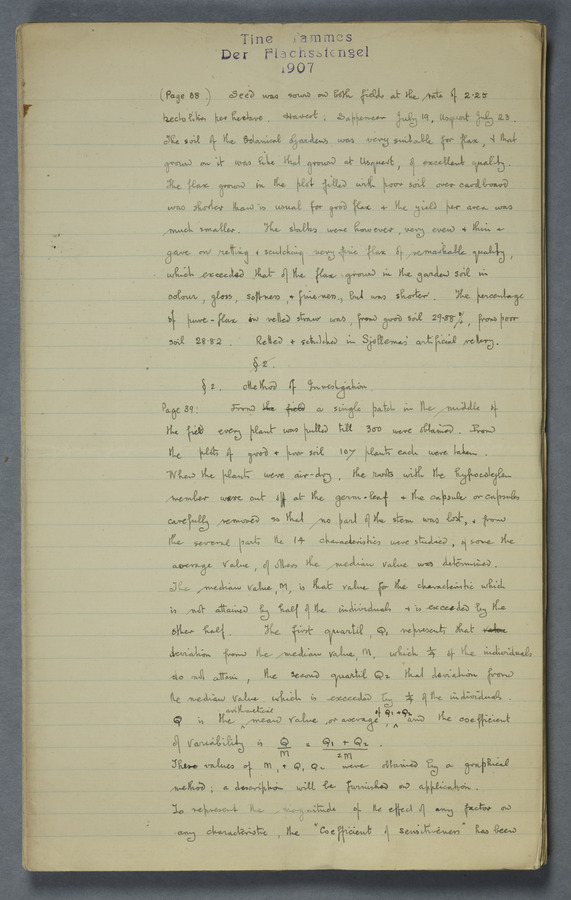 Tine Tammes
Der Flachsstengel
1907
(Page 38.) Seed was sown on both fields at the rate of 2.25
hectoliter per hectare. Harvest: Sappemeer July 19, Usquert July 23.
The soil of the Botanical Gardens was very suitable for flax, & that
grown on it was like that grown at Usquert, of excellent quality.
The flax grown in the plot filled with poor soil over cardboard
was shorter than is usual for good flax & the yield per area was
much smaller. The stalks were however, very even & thin &
gave on retting & scutching very fine flax of remarkable quality,
which exceeded that of the flax grown in the garden soil in
colour, gloss, softness, & fineness, but was shorter. The percentage
of pure-flax in retted straw was, from good soil 29.88%, from poor
soil 28.82. Retted & scutched in Sjollemas' artificial rettery.
§ 2.
§ 2. Method of Investigation.
Page 39: From the field a single patch in the middle of
the field every plant was pulled till 300 were obtained. From
the plots of good & poor soil 107 plants each were taken.
When the plants were air-dry, the roots with the hypocotylen
member were cut off at the germ-leaf & the capsule or capsules
carefully removed so that no part of the stem was lost, & from
the several parts the 14 characteristics were studied, of some the
average value, of others the median value was determined.
The median value, M, is that value for the characteristic which
is not attained by half of the individuals & is exceeded by the
other half. The first quartil, Q1 represents that value
deviation from the median value, M, which ¼ of the individuals
do not attain, the second quartil Q2 that deviation from
the median value which is exceeded by ¼ of the individuals.
Q is the arithmetical mean value, or average of Q1 + Q2, and the coefficient
of variability is Q/M = Q1 + Q2 / 2M.
These values of M, & Q, Q2 were obtained by a graphical
method; a description will be furnished on application.
To represent the magnitude of the effect of any factor on
any characteristic, the "Coefficient of sensitiveness" has been